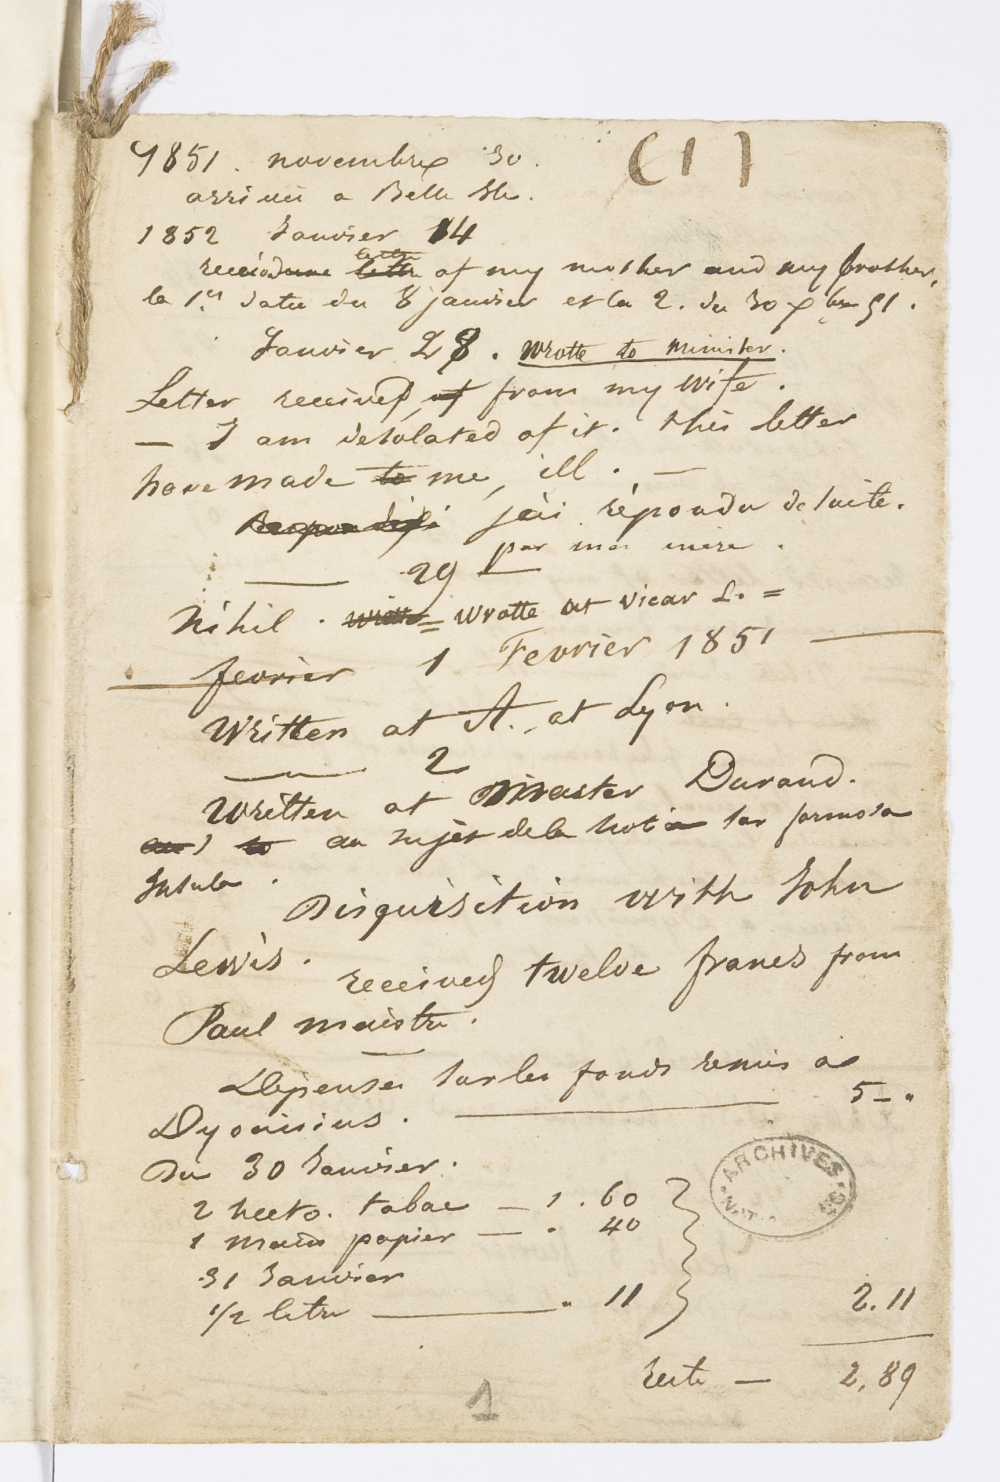 (1)
1851. novembre 30.
arrivée a Belle Ile.
1852 Janvier 14
recei une lettre of my mother and my brother,
la 1re datée du 8 janvier et la 2. du 30 Xbre 51.
Janvier 28. Wrotte to minister.
Letter received of from my wife.
— I am desolated of it. this letter
have made to me, ill. —
j'ai répondu de suite.
par ma mère.
— 29 —
Nihil. wrotte = wrotte at vicar L. =
fevrier 1 Fevrier 1851 —
Written at A., at Lyon.
— 2
Written at Master Durand.
to au sujèt de la sur formosa
Insula.
Disquisition with John
Lewis.
received twelve francs from
Paul maistre.
Dépenses sur les fonds remis à
Dyonisius. — 5 - "
Du 30 Janvier.
2 hecto. tabac — 1. 60
1 main papier — " 40
31 Janvier
1/2 litre — " 11
2.11
reste — 2,89
ARCHIVES
1